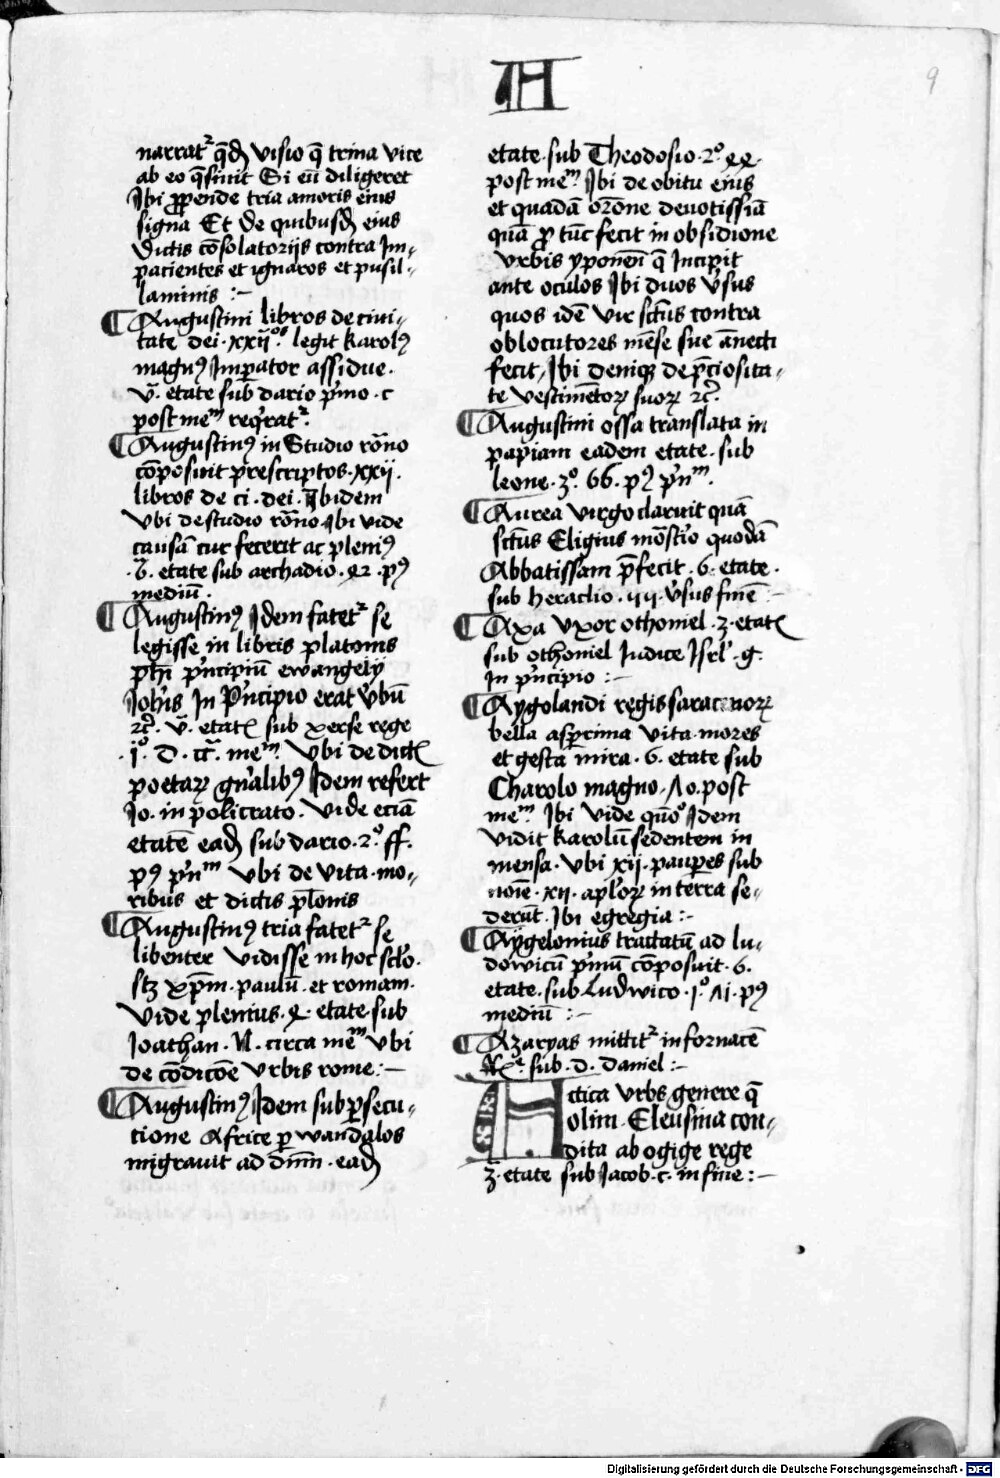 A
9
narratᷣ q̄dā visio q̄ trina vice
ab eo q̄siuit Si eū diligeret
Ibi ꝓpende tria amoris eius
signa Et de quibusdā eius
dictis cōsolatorijs contra Im-
pacientes et ignaros et pusil-
laminis :-
¶ Augustini libros de ciui-
tate dei · xxijᵒˢ legit Karolꝰ
magnꝰ Imꝑator assidue ·
v̄ · etate sub dario pͥmo · c
post meᵐ reqͥratᷣ
¶ Augustinꝰ in Studio rōno
cōposuit prescriptos · xxij ·
libros de ci · dei · Ibidem
vbi de studio rōno ibi vide
causā cur fecerit ac pleniꝰ
· 6̄ · etate sub archadio · pꝰ
mediū ·
¶ Augustinꝰ Idem fatetᷣ se
legisse in libris platonis
ph̄i pͥncipiū ewangelij
Ioh̄is In Pͥncipio erat v̓bū
⁊c̄ · v̄ · etate sub xerse rege
· iᵒ · d · cc̄ · meᵐ · vbi de dictis
poetaꝝ gn̄alibꝰ Idem refert
Io · in policrato · vide eciā
etatē eadē sub dario · 2ᵒ ff ·
pꝰ pͥnᵐ vbi de vita · mo-
ribus et dictis pl̄onis
¶ Augustinꝰ tria fatetᷣ se
libenter vidisse in hoc scl̓o ·
sꝫ xp̄m · paulū · et romam ·
vide plenius · 4 · etate sub
Ioathan · N · circa meᵐ vbi
de cōdicōe vrbis rome :-
¶ Augustinꝰ Idem sub ꝑsecu-
tione Africe ꝑ wandalos
migrauit ad dn̄m · eadē
etate · sub Theodosio · 2ᵒ · 44 ·
post meᵐ Ibi de obitu eius
et quadā or̄one deuotissīā
quā ꝓ tūc fecit in obsidione
vrbis yponen̄ q̄ Incipit
ante oculos Ibi duos v̓sus
quos idē vir sctūs contra
oblocutores mēse sue ānecti
fecit, Ibi deniqꝫ de p̄ciosita-
te vestimētoꝝ suoꝝ ⁊c̄ ·
¶ Augustini ossa translata in
papiam eadem etate · sub
leone · 3ᵒ · 66 · pꝰ pͥnᵐ ·
¶ Aurea virgo claruit quā
sctūs Eligius mōst̓io quodā
Abbatissam p̄fecit · 6 · etate ·
sub heraclio · v̓sus finē :-
¶ Axa vxor othoniel · 3 · etate
sub othoniel Iudice Isrl̓ · g ·
In pͥncipio :-
¶ Aygolandi regis saracenoꝝ
bella asꝑrima vita · mores
et gesta mira · 6 · etate sub
Charolo magno · 10 · post
meᵐ Ibi vide quōᵒ Idem
vidit Karolū sedentem in
mensa · vbi xij · pauꝑes sub
noīe · xij · apl̓oꝝ in terra se-
derūt · Ibi egregia :-
¶ Aygelonius tractatū ad lu-
dowicū pͥmū cōposuit · 6 ·
etate · sub Ludwico · Iᵒ 11 · pꝰ
mediū :-
¶ Azaryas mittitᷣ in fornacē
sub · d · daniel :-
Actica vrbs genere q̄
olim · Eleusina con-
dita ab ogige rege
3̄ · etate sub Jacob · c · in fine :-
Digitalisierung gefördert durch die Deutsche Forschungsgemeinschaft - DFG